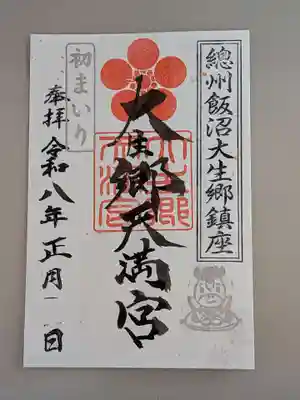 總州飯沼大生郷鎮座
大生郷天満宮
初まいり
奉拝 令和八年正月一日